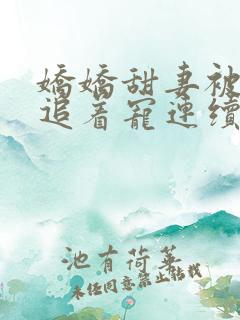 嬌嬌甜妻被
追着寵連續
池有荷華
未经同意禁止转载